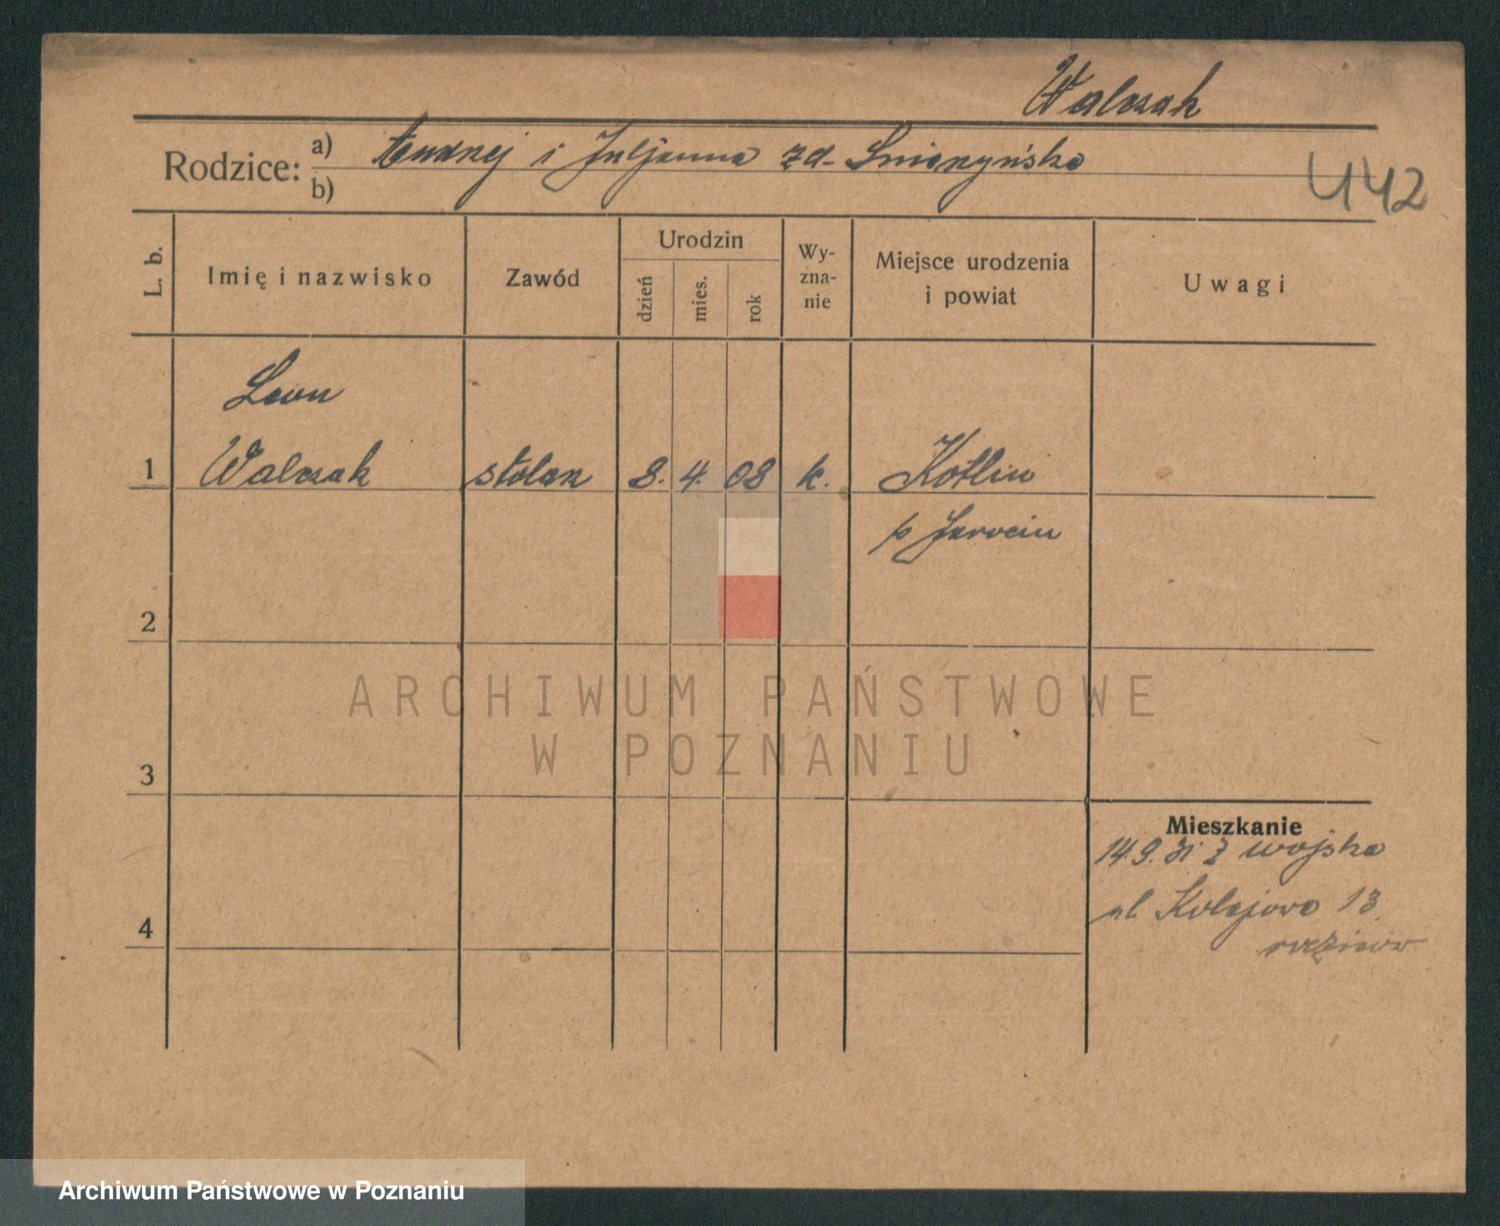 Walczak
Rodzice: a) Andrzej i Juljanna zd.
b)
442
L. b.
Imię i nazwisko
Zawód
Urodzin
dzień
mies.
rok
Wy-
zna-
nie
Miejsce urodzenia
i powiat
Uwagi
Leon
1 Walczak stolarz 8. 4. 08 k. Kotlin
p Jarocin
2
3
4
Mieszkanie
14.9. z wojska
ul Kolejowa 13
ARCHIWUM PAŃSTWOWE
W POZNANIU
Archiwum Państwowe w Poznaniu